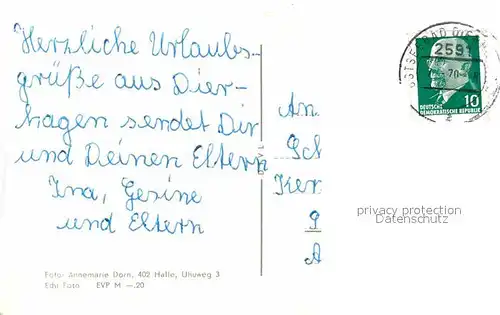 Herzliche Urlaubs-
grüße aus Dier-
hagen sendet Dir
und Deinen Eltern
Ina, Gesine
und Eltern
Foto: Annemarie Dorn, 402 Halle, Uhuweg 3
Echt Foto EVP M —.20
OSTSEEBAD
2591
70
10
DEUTSCHE
DEMOKRATISCHE REPUBLIK
An
privacy protection
Datenschutz